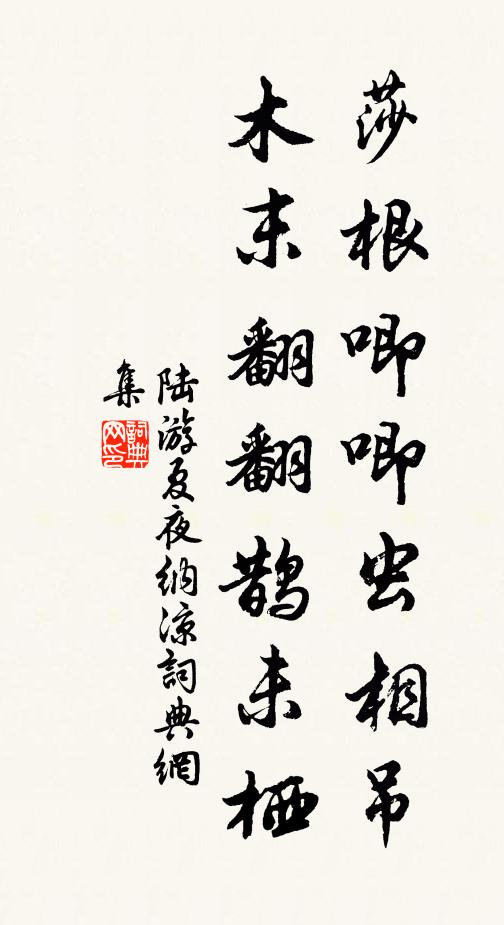 莎根唧唧虫相吊
木末翻翻鹊未栖
陆游夏夜纳凉詞典網
集
詞典网印